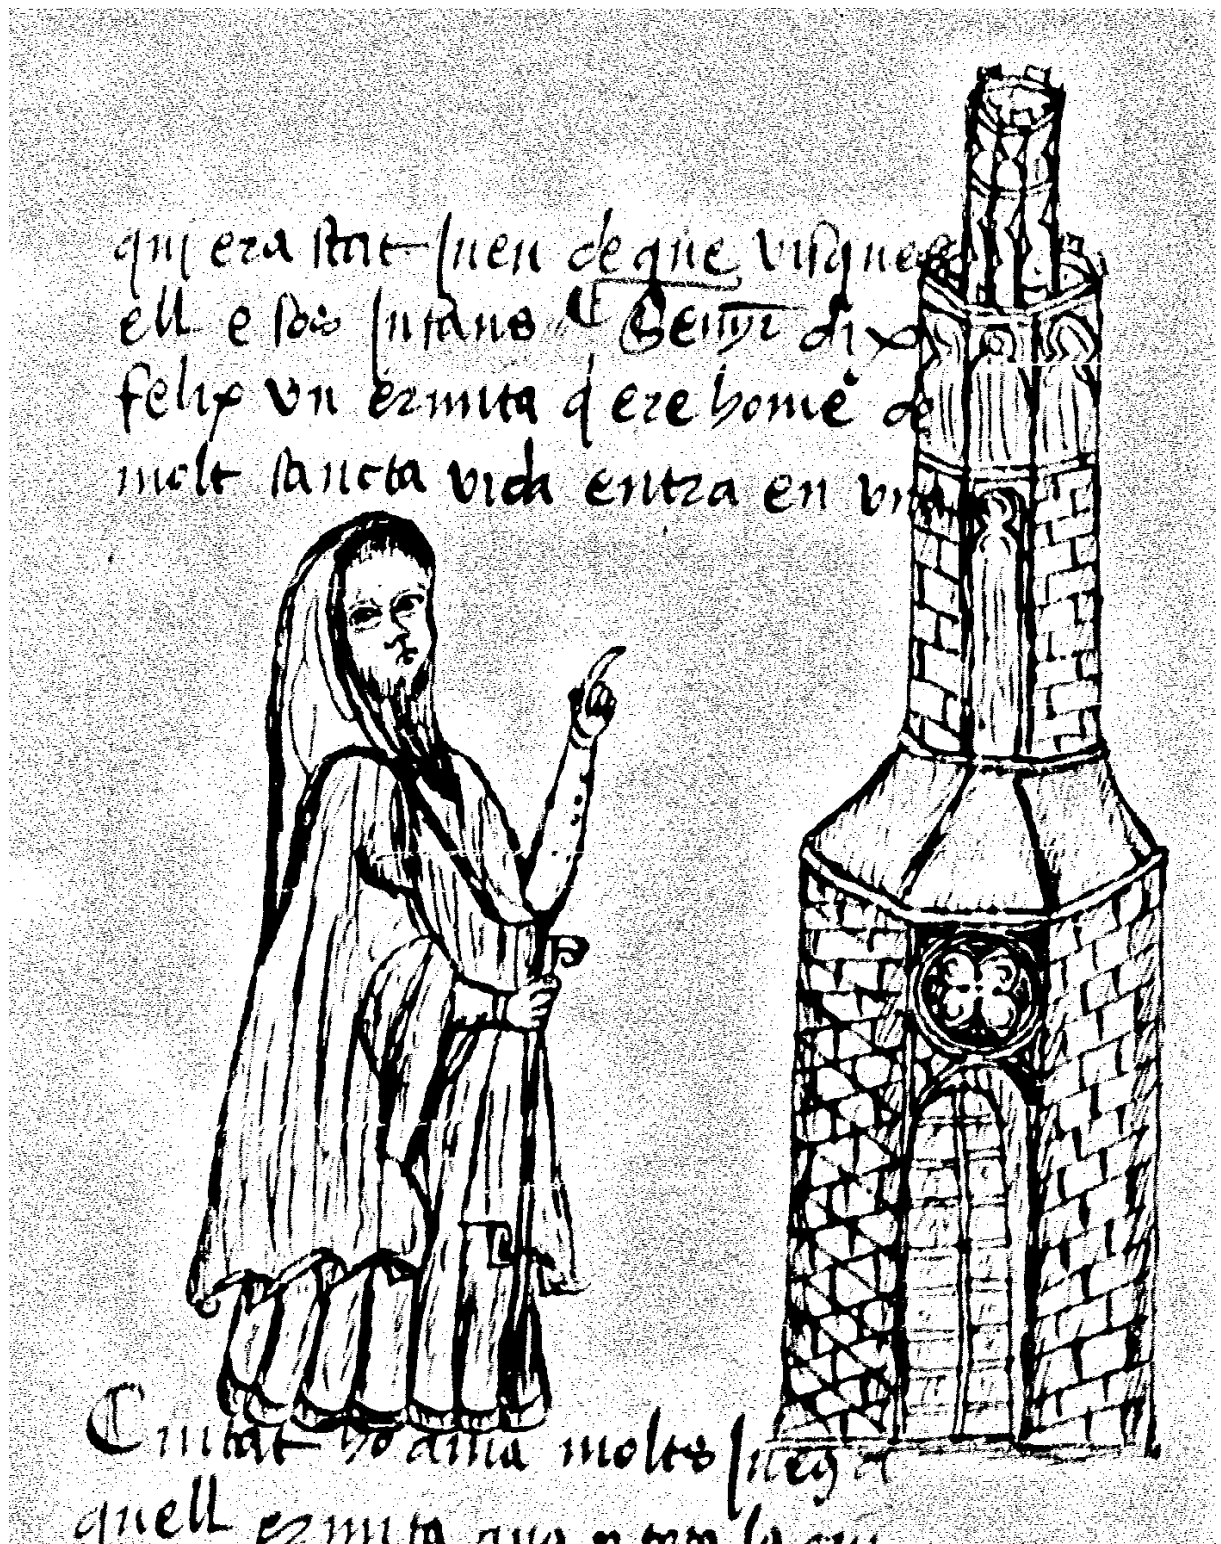 qui era stat Jueu de que visques
ell e sos Infans Senyer dix
felix vn ermita q ere home de
molt sancta vida entra en vna
Ciutat ho auia molts a
quell ermita ana p tota la ciu